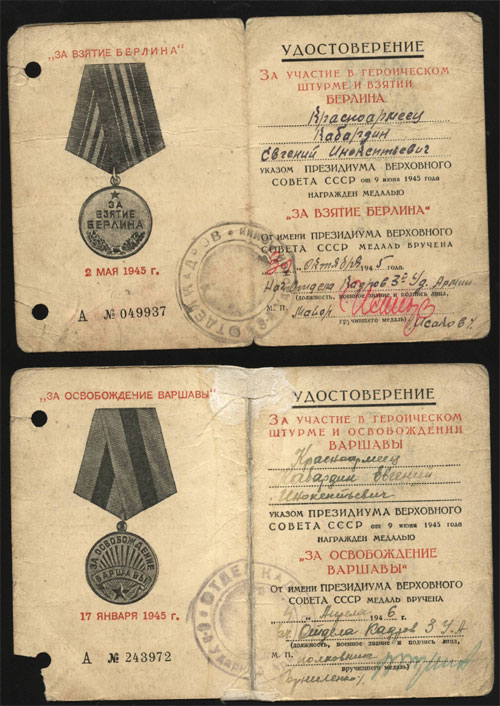 „ЗА ВЗЯТИЕ БЕРЛИНА“
ЗА
ВЗЯТИЕ
БЕРЛИНА
2 МАЯ 1945 г.
А № 049937
УДОСТОВЕРЕНИЕ
ЗА УЧАСТИЕ В ГЕРОИЧЕСКОМ
ШТУРМЕ И ВЗЯТИИ
БЕРЛИНА
Красноармеец
Кабардин
Евгений Инокентьевич
УКАЗОМ ПРЕЗИДИУМА ВЕРХОВНОГО
СОВЕТА СССР от 9 июня 1945 года
НАГРАЖДЕН МЕДАЛЬЮ
„ЗА ВЗЯТИЕ БЕРЛИНА“
ОТ ИМЕНИ ПРЕЗИДИУМА ВЕРХОВНОГО
СОВЕТА СССР МЕДАЛЬ ВРУЧЕНА
октября 1945 года.
Нач Отдела Кадров 3й Уд. Армии
(должность, военное звание и подпись лица,
М. П. Майор
вручившего медаль) (Исаков)
ОТДЕЛ КАДРОВ
„ЗА ОСВОБОЖДЕНИЕ ВАРШАВЫ“
ЗА ОСВОБОЖДЕНИЕ
ВАРШАВЫ
17 ЯНВАРЯ 1945 г.
А № 243972
УДОСТОВЕРЕНИЕ
ЗА УЧАСТИЕ В ГЕРОИЧЕСКОМ
ШТУРМЕ И ОСВОБОЖДЕНИИ
ВАРШАВЫ
Красноармеец
Кабардин Евгений
Инокентьевич
УКАЗОМ ПРЕЗИДИУМА ВЕРХОВНОГО
СОВЕТА СССР от 9 июня 1945 года
НАГРАЖДЕН МЕДАЛЬЮ
„ЗА ОСВОБОЖДЕНИЕ
ВАРШАВЫ“
ОТ ИМЕНИ ПРЕЗИДИУМА ВЕРХОВНОГО
СОВЕТА СССР МЕДАЛЬ ВРУЧЕНА
Апреля 1946 г.
Отдела Кадров 3 У.А
(должность, военное звание и подпись лица,
М. П. полковник
вручившего медаль)
ОТДЕЛ